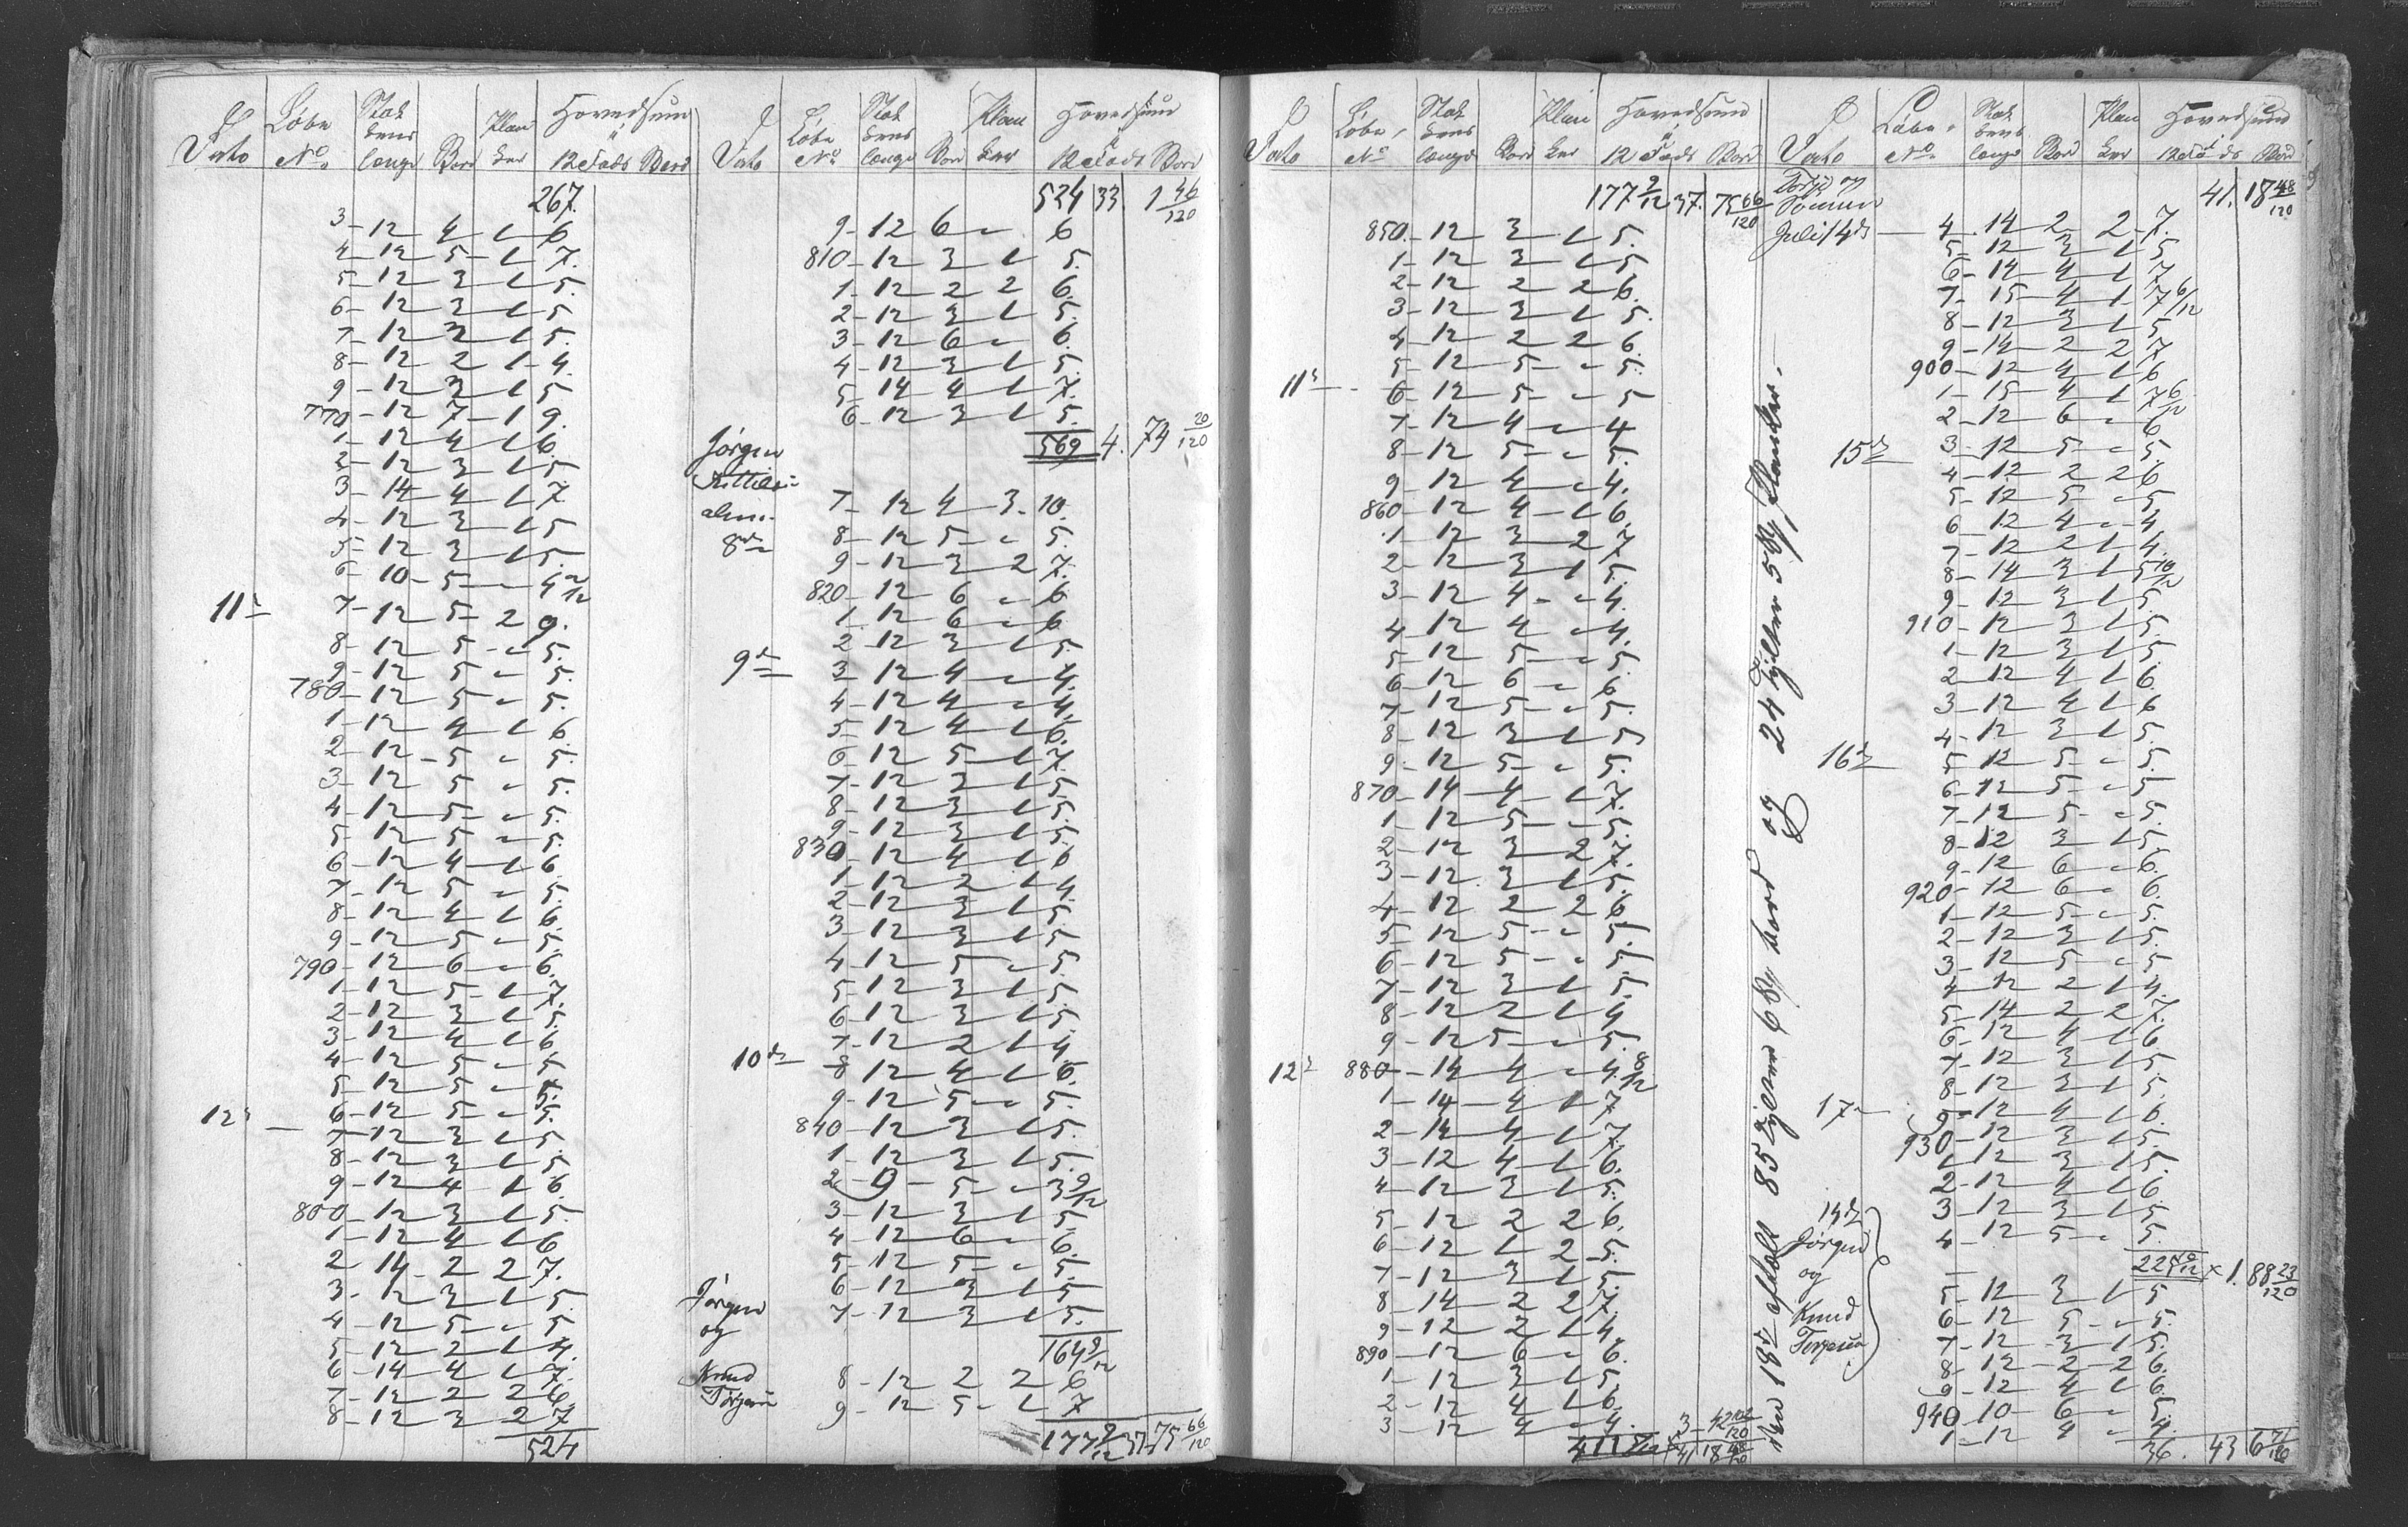 Dato Løbe No. Stok kens længe Bord Plan ker Hovedsum a 12 Fods Bord
267.
3 - 12 4 1 6
4 - 12 5 - 1 7.
5 - 12 3 1 5.
6 - 12 3 1 5
7 - 12 3 1 5.
8 - 12 2 1 - 4.
9 - 12 3 1 5
770 - 12 7 - 1 9.
1 - 12 4 1 6.
2 - 12 3 1 5
3 - 14 4 1 7
4 - 12 3 1 5
5 - 12 3 1 5.
6 - 10 - 5 - " 4 2/12
11 7 - 12 5 - 2 9.
8 - 12 5 - " 5.
9 - 12 5 " 5.
780 - 12 5 " 5.
1 - 12 4 1 6
2 - 12 - 5 " 5.
3 - 12 5 " 5.
4 - 12 5 - " 5.
5 - 12 5 " 5.
6 - 12 4 - 1 6.
7 - 12 5 " 5.
8 - 12 4 1 6.
9 - 12 5 " 5.
790 - 12 6 " 6.
1 - 12 5 - 1 7.
2 - 12 3 1 5.
3 - 12 4 1 6
4 - 12 5 " 5
5 - 12 5 " 5.
6 - 12 5 - " 5.
12 7 - 12 3 1 5.
8 - 12 3 1 5
9 - 12 4 1 6.
800 - 12 3 1 5.
1 - 12 4 1 6
2 14 - 2 2 7.
3 - 12 3 1 5.
4 - 12 5 - " 5
5 - 12 2 1 4.
6 - 14 4 1 7.
7 - 12 2 2 6
8 - 12 3 2 7
524
Dato Løbe No Stok kens længe Bord Plan ker Hovedsum a 12 Fods Bord
524 33. 1 46/120
9 - 12 6 " 6
810 - 12 3 1 5.
1 - 12 2 2 6.
2 - 12 3 1 5.
3 - 12 6 " 6.
4 - 12 3 1 5.
5 - 14 4 1 7.
6 - 12 3 1 5.
569 4. 74 20/120
Jørgen
7 - 12 4 3 - 10.
8 8 - 12 5 - " 5.
9 - 12 3 2 7.
820 - 12 6 " 6
1 - 12 6 " 6
2 - 12 3 1 5.
9 3 - 12 4 " 4.
4 - 12 4 " 4.
5 - 12 4 1 6.
6 - 12 5 - 1 7.
7 - 12 3 1 5
8 - 12 3 1 5.
9 - 12 3 1 5.
830 - 12 4 1 6
1 - 12 2 1 4.
2 - 12 3 1 5.
3 - 12 3 1 5
4 - 12 5 " 5.
5 - 12 3 1 5.
6 - 12 3 1 5.
7 - 12 2 1 4.
10 8 12 4 1 6.
9 - 12 5 - " 5.
840 - 12 3 1 5.
1 - 12 3 1 5.
2 - 9 - 5 - " 3 9/12
3 - 12 3 1 5
4 - 12 6 " 6.
5 - 12 5 - " 5.
6 - 12 3 1 5
7 - 12 3 1 5.
Jørgen
og
164 9/12
Knud 8 - 12 2 2 6
9 - 12 5 - 1 7
177 9/12 37 - 75 66/120
Dato Løbe No Stok kens længe Bord Plan ker Hovedsum a 12 Fods Bord
177 9/12 37. 75 66/120
850 - 12 3 1 5.
1 - 12 3 1 5
2 - 12 2 2 6.
3 - 12 3 1 5.
4 - 12 2 2 6.
5 - 12 5 - " 5.
11 6 - 12 5 - " 5
7 - 12 4 " 4
8 - 12 5 - " 5.
9 - 12 4 " 4.
860 - 12 4 - 1 6.
1 - 12 3 2 7
2 - 12 3 1 5.
3 - 12 4 - " 4.
4 - 12 4 " 4.
5 - 12 5 - " 5.
6 - 12 6 " 6.
7 - 12 5 - " 5.
8 - 12 3 1 5
9 - 12 5 - " 5.
870 - 14 4 - 1 7.
1 - 12 5 - " 5.
2 - 12 3 2 7.
3 - 12 3 1 5.
4 - 12 2 2 6.
5 - 12 5 - " 5
6 - 12 5 - " 5
7 - 12 3 1 5.
8 - 12 2 1 4
9 - 12 5 - " 5.
12 880 - 14 4 " 4. 8/12
1 - 14 - 4 1 7
2 - 14 4 1 7.
3 - 12 4 - 1 6.
4 - 12 3 1 5.
5 - 12 2 2 6.
6 - 12 1 2 - 5.
7 - 12 3 1 5.
8 - 14 2 2 7.
9 - 12 2 1 4.
890 - 12 6 " 6.
1 - 12 3 1 5.
2 - 12 4 1 6.
3 - 12 4 " 4. 3 - 42 102/120
411 5/12 41 18 48/120
Den 18 afholt 85 Tylvter 6 bord og 24 Tylter 5 Planker.
Dato Løbe No. Stok kens længe Bord Plan ker Hovedsum a 12 Fods Bord
41. 18 48/120
Juli 14 4 - 14 2 - 2 - 7.
5 - 12 3 1 5
6 - 14 4 1 7
7 - 15 - 4 1 - 7 6/12
8 - 12 3 1 5
9 - 14 2 2 7.
900 - 12 4 1 6.
1 - 15 - 4 1 7 6/12
2 - 12 6 " 6
15 3 - 12 5 - " 5.
4 - 12 2 2 6
5 - 12 5 - " 5
6 - 12 4 - " 4.
7 - 12 2 1 4.
8 - 14 3 1 5 10/12
9 - 12 3 1 5.
910 - 12 3 1 5.
1 - 12 3 1 5.
2 - 12 4 1 6.
3 - 12 4 1 6
4 - 12 3 1 5.
16 5 12 5 - " 5.
6 - 12 5 - " 5
7 - 12 5 - " 5.
8 - 12 3 1 5.
9 - 12 6 " 6.
920 - 12 6 " 6.
1 - 12 5 - " 5.
2 - 12 3 1 5.
3 - 12 5 - " 5
4 - 12 2 1 4.
5 - 14 2 2 7.
6 - 12 4 1 6
7 - 12 3 1 5
8 - 12 3 1 5.
17 9 - 12 4 1 6.
930 - 12 3 1 5.
1 12 3 1 5.
2 - 12 4 1 6.
3 - 12 3 1 5
4 - 12 5 - " 5.
225 10/12 × 1. 88 23/120
14
Jørgen
og
Knud
5 - 12 3 1 5
6 - 12 5 - " 5.
7 - 12 3 1 5.
8 - 12 - 2 - 2 6.
9 - 12 4 1 6.
940 - 10 - 6 " 5.
1 - 12 4 " 4.
36. 43 6 71/120